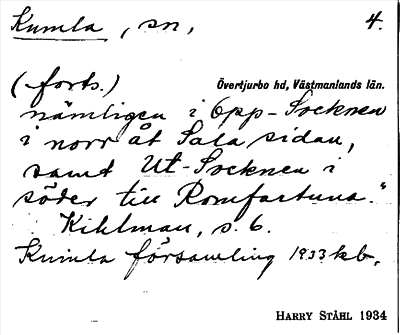 Kumla, sn, 4.
(forts.) Övertjurbo hd, Västmanlands län.
nämligen i Opp-Socknen
i norr åt Sala sidan,
samt Ut-Socknen i
söder till Romfartuna."
Kihlman, s. 6.
Kumla församling 1933 kb.
HARRY STÅHL 1934